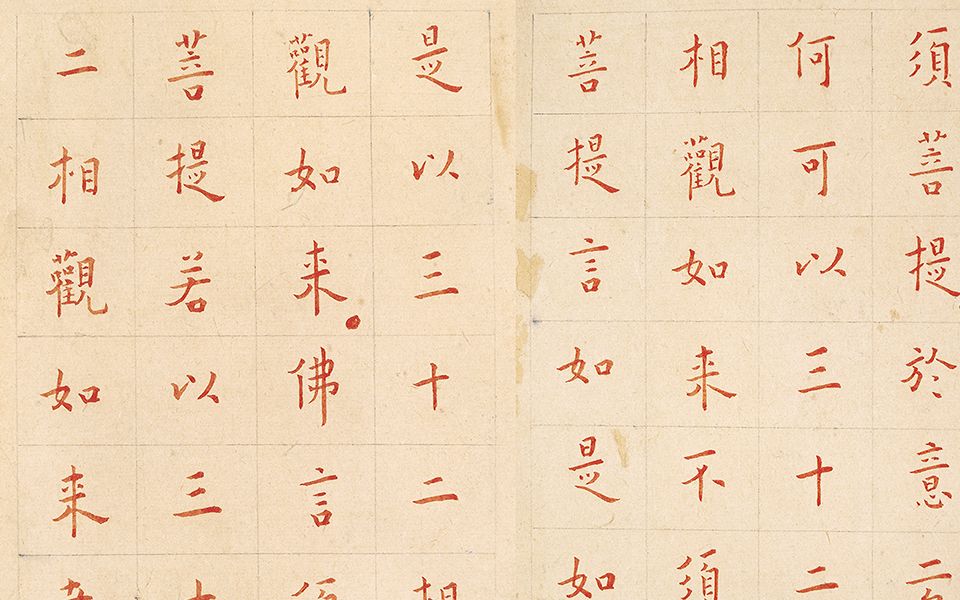 須菩提於意二
何可以三十二
相觀如来不須
菩提言如是如
是以三十二相
觀如来佛言須
菩提若以三十
二相觀如来者